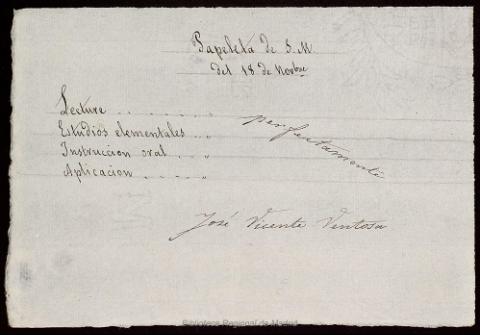 Papeleta de S. M.
del 18 de Novbre
Lectura . . . . . . "
Estudios elementales . . " perfectamente
Instruccion oral . . . "
Aplicacion . . . . . "
José Vicente Ventosa
Biblioteca Regional de Madrid